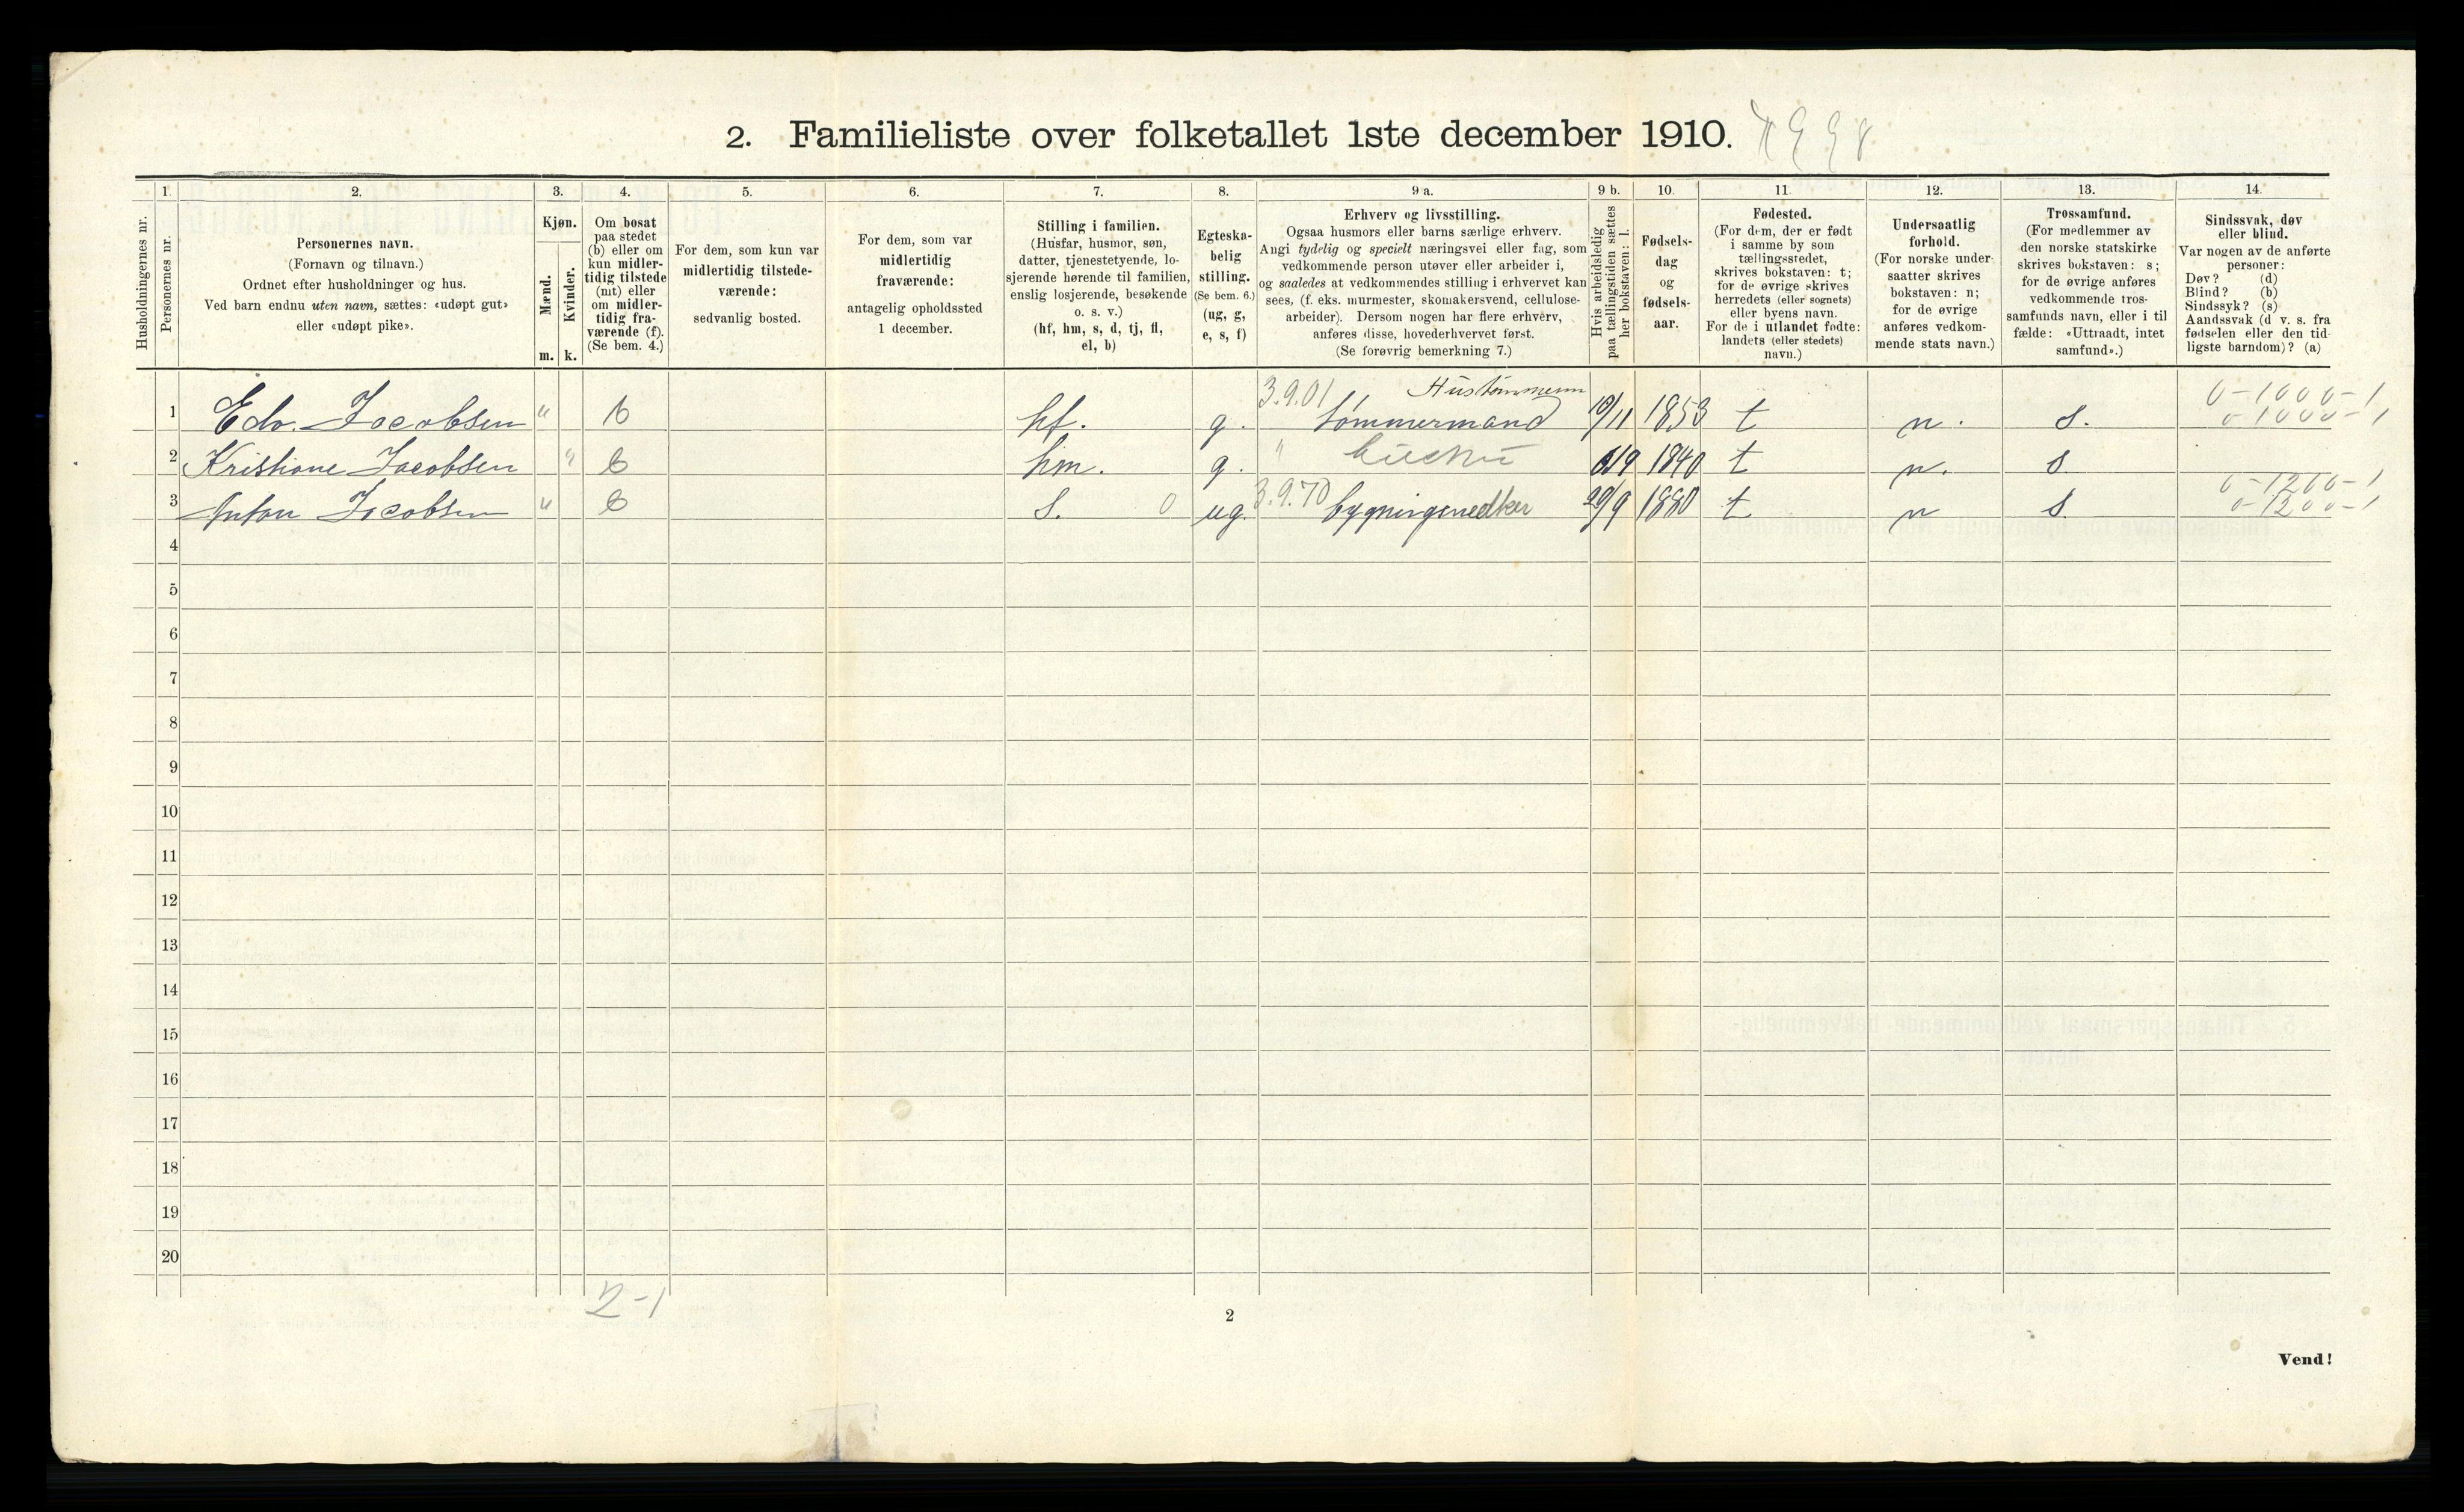 2. Familieliste over folketallet 1ste december 1910.
Husholdningernes nr.
1.
Personernes nr.
2.
Personernes navn.
(Fornavn og tilnavn.)
Ordnet efter husholdninger og hus.
Ved barn endnu uten navn, sættes: «udøpt gut»
eller «udøpt pike».
3.
Kjøn.
Mænd.
Kvinder.
m. k.
4.
Om bosat
paa stedet
(b) eller om
kun midler-
tidig tilstede
(mt) eller
om midler-
tidig fra-
værende (f).
(Se bem. 4.)
5.
For dem, som kun var
midlertidig tilstede-
værende:
sedvanlig bosted.
6.
For dem, som var
midlertidig
fraværende:
antagelig opholdssted
1 december.
7.
Stilling i familien.
(Husfar, husmor, søn,
datter, tjenestetyende, lo-
sjerende hørende til familien,
enslig losjerende, besøkende
o. s. v.)
(hf, hm, s, d, tj, fl,
el, b)
8.
Egteska-
belig
stilling.
(Se bem. 6.)
(ug, g,
e, s, f)
9 a.
Erhverv og livsstilling.
Ogsaa husmors eller barns særlige erhverv.
Angi tydelig og specielt næringsvei eller fag, som
vedkommende person utøver eller arbeider i,
og saaledes at vedkommendes stilling i erhvervet kan
sees, (f. eks. murmester, skomakersvend, cellulose-
arbeider). Dersom nogen har flere erhverv,
anføres disse, hovederhvervet først.
(Se forøvrig bemerkning 7.)
9 b.
Hvis arbeidsledig
paa tællingstiden sættes
her bokstaven: l.
10.
Fødsels-
dag
og
fødsels-
aar.
11.
Fødested.
(For dem, der er født
i samme by som
tællingsstedet,
skrives bokstaven: t;
for de øvrige skrives
herredets (eller sognets)
eller byens navn.
For de i utlandet fødte:
landets (eller stedets)
navn.)
12.
Undersaatlig
forhold.
(For norske under-
saatter skrives
bokstaven: n;
for de øvrige
anføres vedkom-
mende stats navn.)
13.
Trossamfund.
(For medlemmer av
den norske statskirke
skrives bokstaven: s;
for de øvrige anføres
vedkommende tros-
samfunds navn, eller i til
fælde: «Uttraadt, intet
samfund».)
14.
Sindssvak, døv
eller blind.
Var nogen av de anførte
personer:
Døv? (d)
Blind? (b)
Sindssyk? (s)
Aandssvak (d v. s. fra
fødselen eller den tid-
ligste barndom)? (a)
3.9.01 0-1000-1
1 Edv. Jacobsen " b hf. g. tømmermand 10/11 1853 t n. s. 0-1000-1
2 Kristiane Jacobsen " b hm. g. " 6/9 1840 t n. s
0-1200-1
3 Anton Jacobsen " b s. 0 ug. 3.9.70 bygningsnedker 29/9 1880 t n s. 0-1200-1
4
5
6
7
8
9
10
11
12
13
14
15
16
17
18
19
20
2-1
2
Vend!